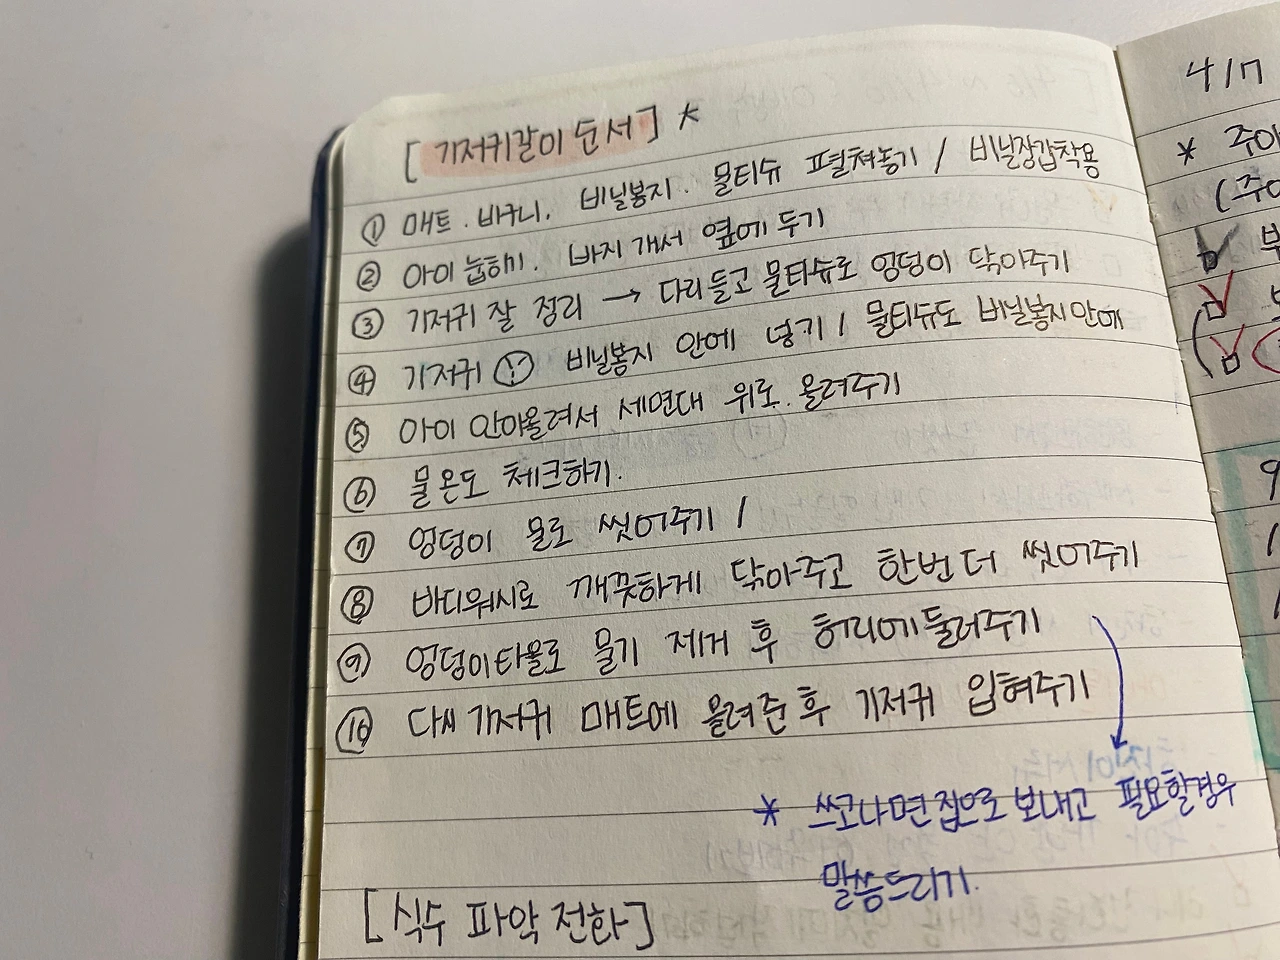 [기저귀갈이 순서] *
① 매트. 바구니. 비닐봉지. 물티슈 펼쳐놓기 / 비닐장갑착용
② 아이 눕히기. 바지 개서 옆에 두기
③ 기저귀 잘 정리 → 다리들고 물티슈로 엉덩이 닦아주기
④ 기저귀 비닐봉지 안에 넣기 / 물티슈도 비닐봉지안에
⑤ 아이 안아올려서 세면대 위로 올려주기
⑥ 물온도 체크하기.
⑦ 엉덩이 물로 씻어주기 /
⑧ 바디워시로 깨끗하게 닦아주고 한번 더 씻어주기
⑨ 엉덩이타올로 물기 제거 후 허리에 둘러주기
⑩ 다시 기저귀 매트에 올려준 후 기저귀 입혀주기
* 쓰고나면 집으로 보내고 필요할경우
말씀드리기.
[식수 파악 전화]
4/17
* 주아
(주아